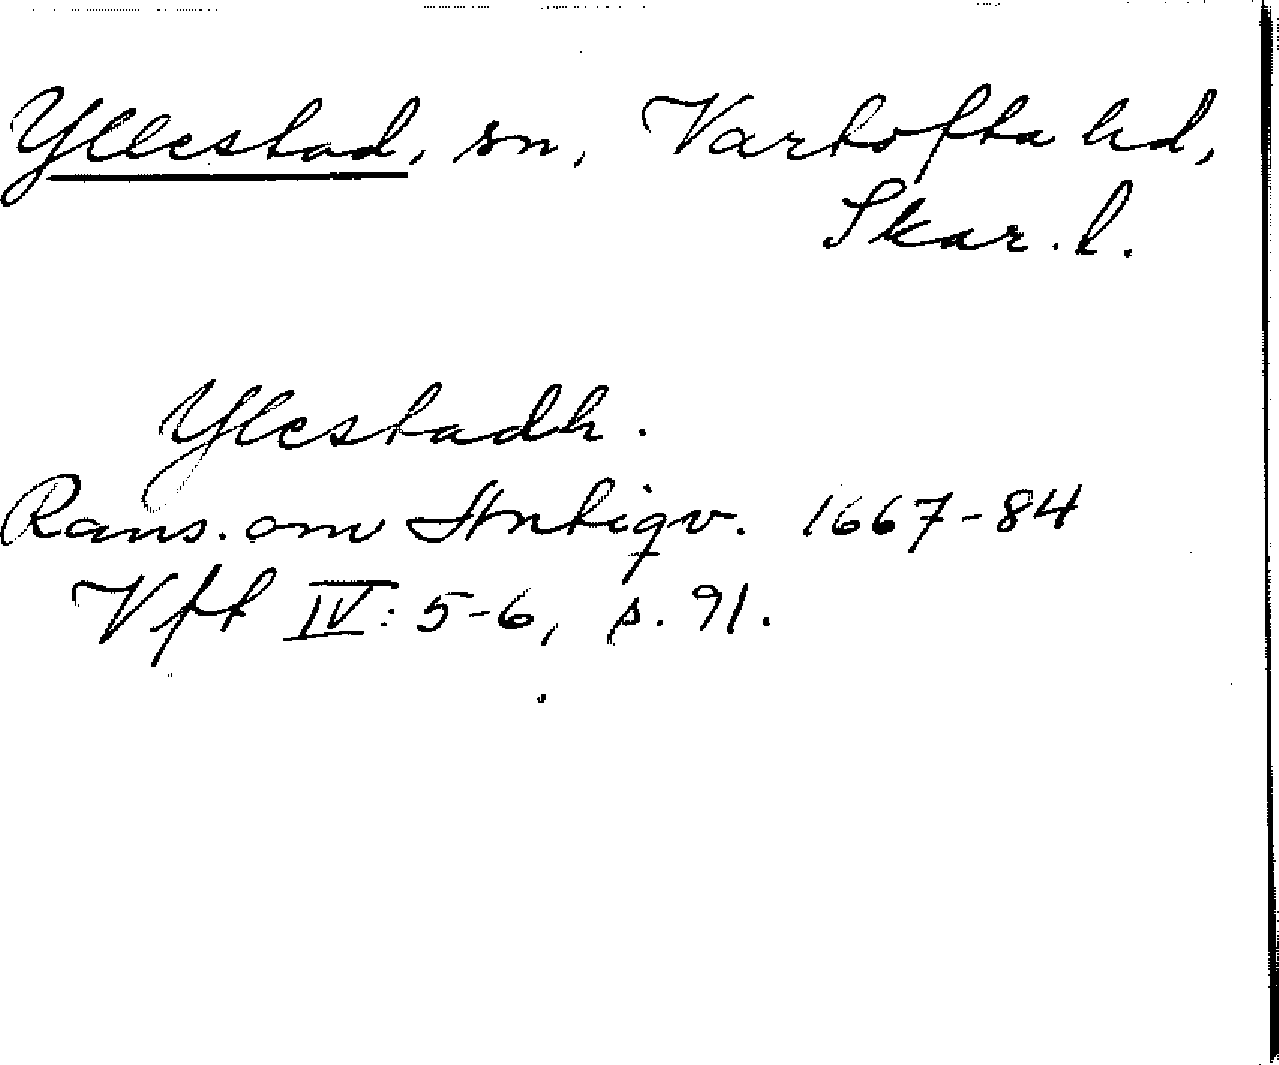 Yllestad, sn, Vartofta hd,
Skar. l.
Ylestadh.
Rans. om Antiqv. 1667-84
Vft IV: 5-6, s. 91.